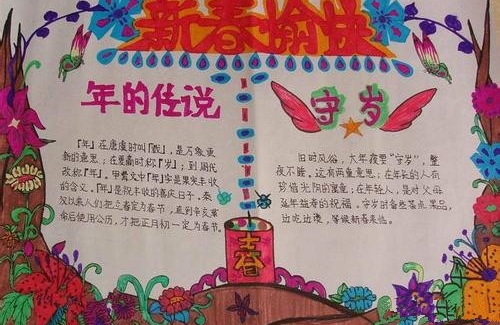 新春愉快
年的传说
「年」在唐虞时叫「载」,是万象更
新的意思;在夏商时称「岁」;到周代
改称「年」。甲骨文中「年」字是果实丰收
的含义。「年」是祝丰收的喜庆日子。秦
汉以来人们把立春定为春节,直到辛亥革
命后使用公历,才把正月初一定为春节。
守岁
旧时风俗,大年夜要"守岁",整
夜不睡。这有两重意思:在年长的人有
珍惜光阴的寓意;在年轻人,是对父母
延年益寿的祝福。守岁时备些茶点、果品,
边吃边谈,等候新春来临。
春